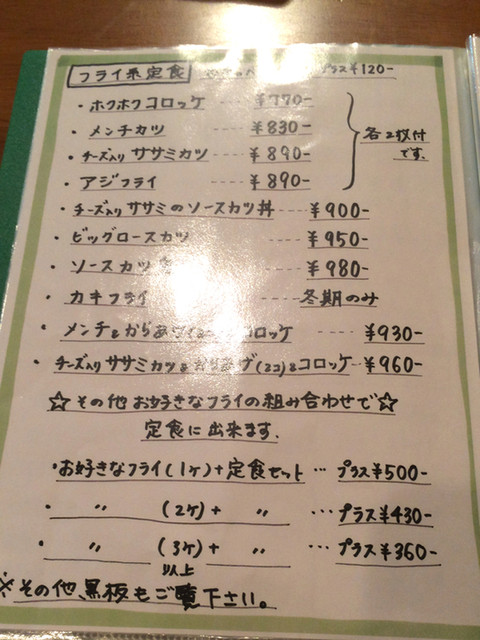 フライ系定食 プラス¥120-
・ホクホクコロッケ ---- ¥770-
・メンチカツ ---- ¥830-
・チーズ入りササミカツ ---- ¥890-
・アジフライ ---- ¥890-
各2枚付
です。
・チーズ入りササミのソースカツ丼 ---- ¥900-
・ビッグロースカツ ---- ¥950-
・ソースカツ ---- ¥980-
・カキフライ ---- 冬期のみ
・メンチ&からあげ コロッケ ¥930-
・チーズ入りササミカツ&からあげ(2コ)&コロッケ-- ¥960-
☆その他お好きなフライの組み合わせで☆
定食に出来ます。
・お好きなフライ(1ヶ)+定食セット … プラス¥500-
・ 〃 (2ヶ)+ 〃 … プラス¥430-
・ 〃 (3ヶ)+ 〃 … プラス¥360-
以上
※その他、黒板もご覧下さい。